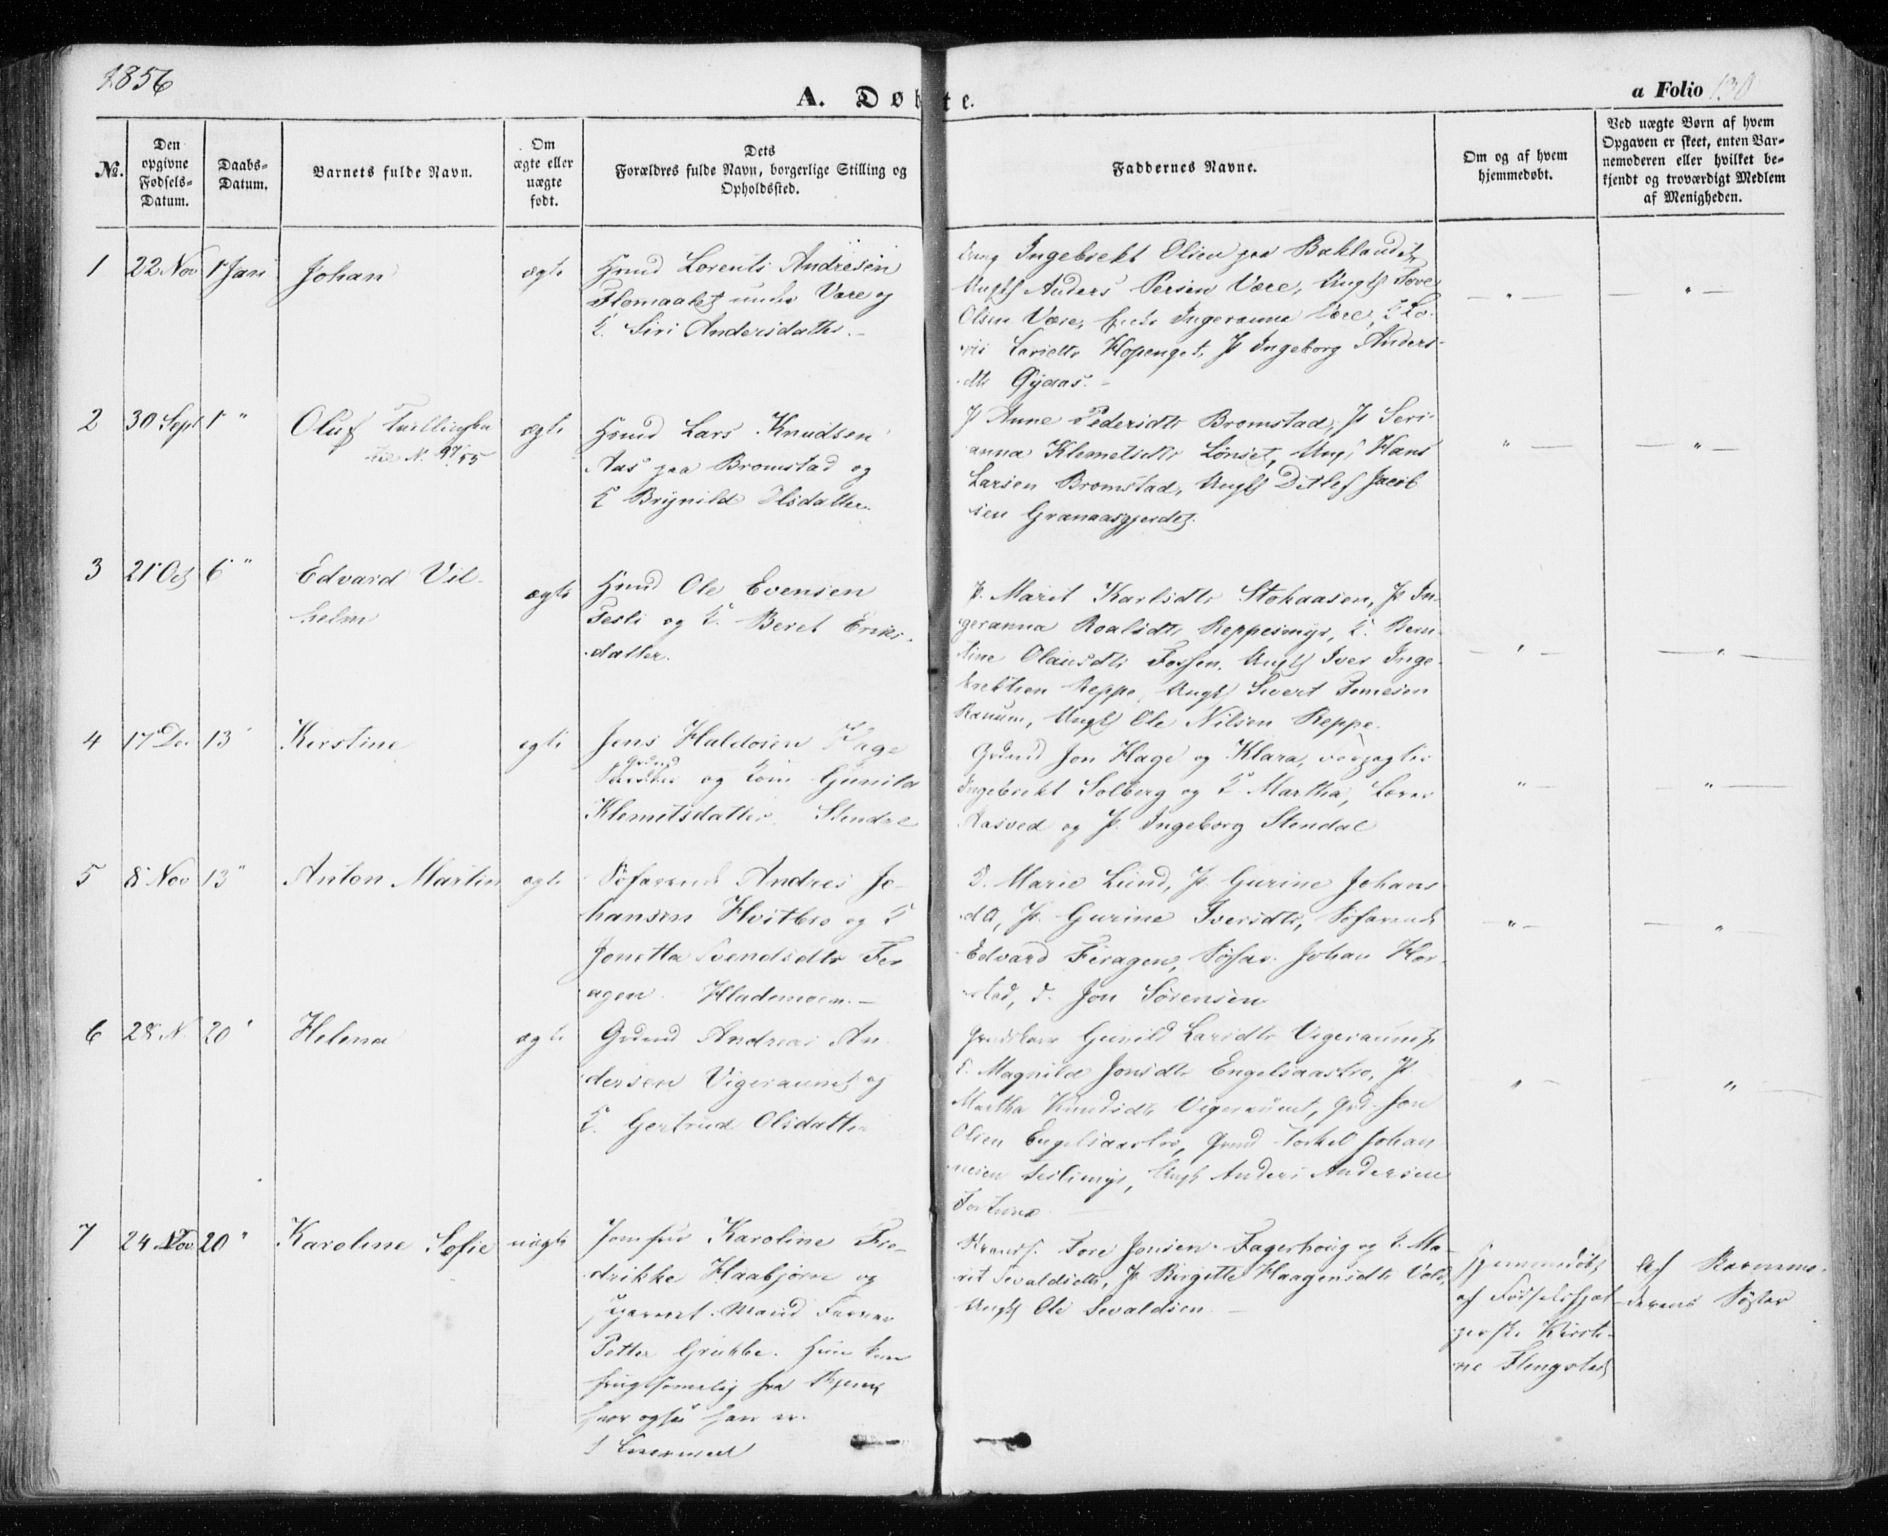 1856
A. Døbte.
a Folio 130
No.
Den opgivne Fødsels-Datum.
Daabs-Datum.
Barnets fulde Navn.
Om ægte eller uægte født.
Dets Forældres fulde Navn, borgerlige Stilling og Opholdssted.
Faddernes Navne.
Om og af hvem hjemmedøbt.
Ved uægte Børn af hvem Opgaven er skeet, enten Barnemoderen eller hvilket bekjendt og troværdigt Medlem af Menigheden.
1 22 Nov 1 Jan Johan ægte
Lorents Andresen
under Være og
K. Siri Andersdatter.
Ingebrekt Olsen paa Baklandet,
Ungk Anders Persen Være, Ungk Tove
Olsen Være, Ingeranna Være, K Lo-
Larsdtr Hopenget, P Ingeborg Anders-
dtr
2 30 Sept 1 " Oluf Tvillingbr ægte
N. 97/55
Husmd Lars Knudsen
Aas paa Bromstad og
K Brynild Olsdatter.
P Anne Pedersdtr Bromstad, P Seri-
anna Klemetsdtr Lønset, Ungk Hans
Larsen Bromstad, Ungk Ditlef Jacob
sen Granaasgjerdet.
3 21 Oct 6 " Edvard Vil-
helm
ægte
Husmd Ole Evensen
Tesli og K. Beret Eriks-
datter.
P. Marit Karlsdtr Stokaasen, P In-
geranna Roalsdtr Reppesmyr, K. Bern-
tine Olausdtr Fossen, Ungk Iver Inge-
brektsen Reppe, Ungk Sivert
Ranum, Ungk Ole Nilsen Reppe.
4 17 Dec 13 " Kirstine ægte
Jens Haldosen Hage
og Kone Gunild
Klemetsdatter Stendal
Grdmd Jon Hage og Klara,
Ingebrekt Solberg og K Martha, Lærer
Aasved og P. Ingeborg Stendal
5 8 Nov 13 " Anton Martin ægte
Søfarende Andres Jo-
hansen Hvitbro og K
Jonetta Svendsdtr Fer-
agen. Hladmoen.
K. Marie Lund, P. Gurine Johans
dtr, P. Gurine Iversdtr, Søfarende
Edvard Feragen, Søfar. Johan Hor-
stad, d. Jon Sørensen
6 28 N. 20 " Helena ægte
Grdmd Andreas An-
dersen Vigeraunet og
K. Gertrud Olsdatter
Gunild Larsdtr Vigeraunet,
K. Magnild Jonsdtr Engelsaastrø, P
Martha Knudsdtr Vigeraunet, Grd. Jon
Olsen Engelsaastrø, Grmd Torkel Johan-
nesen Teslimyr, Ungk Anders Andersen
Fortuna
7 24 Nov 20 " Karoline Sofie uægte
Jomfru Karoline Fre-
drikke Haabjørn og
Petter Grubbe. Hun kom
frugtsommelig fra
hvor også han er.
Tore Jonsen Fagerhoug og K. Ma-
rit Sevaldsdtr, P Birgitte Haagensdtr Vold,
Ungk Ole Sevaldsen
Hjemmedøbt
af Fødselshjæl-
perske Kirsti-
ne Flengstad
Af Barnemo-
derens Søster